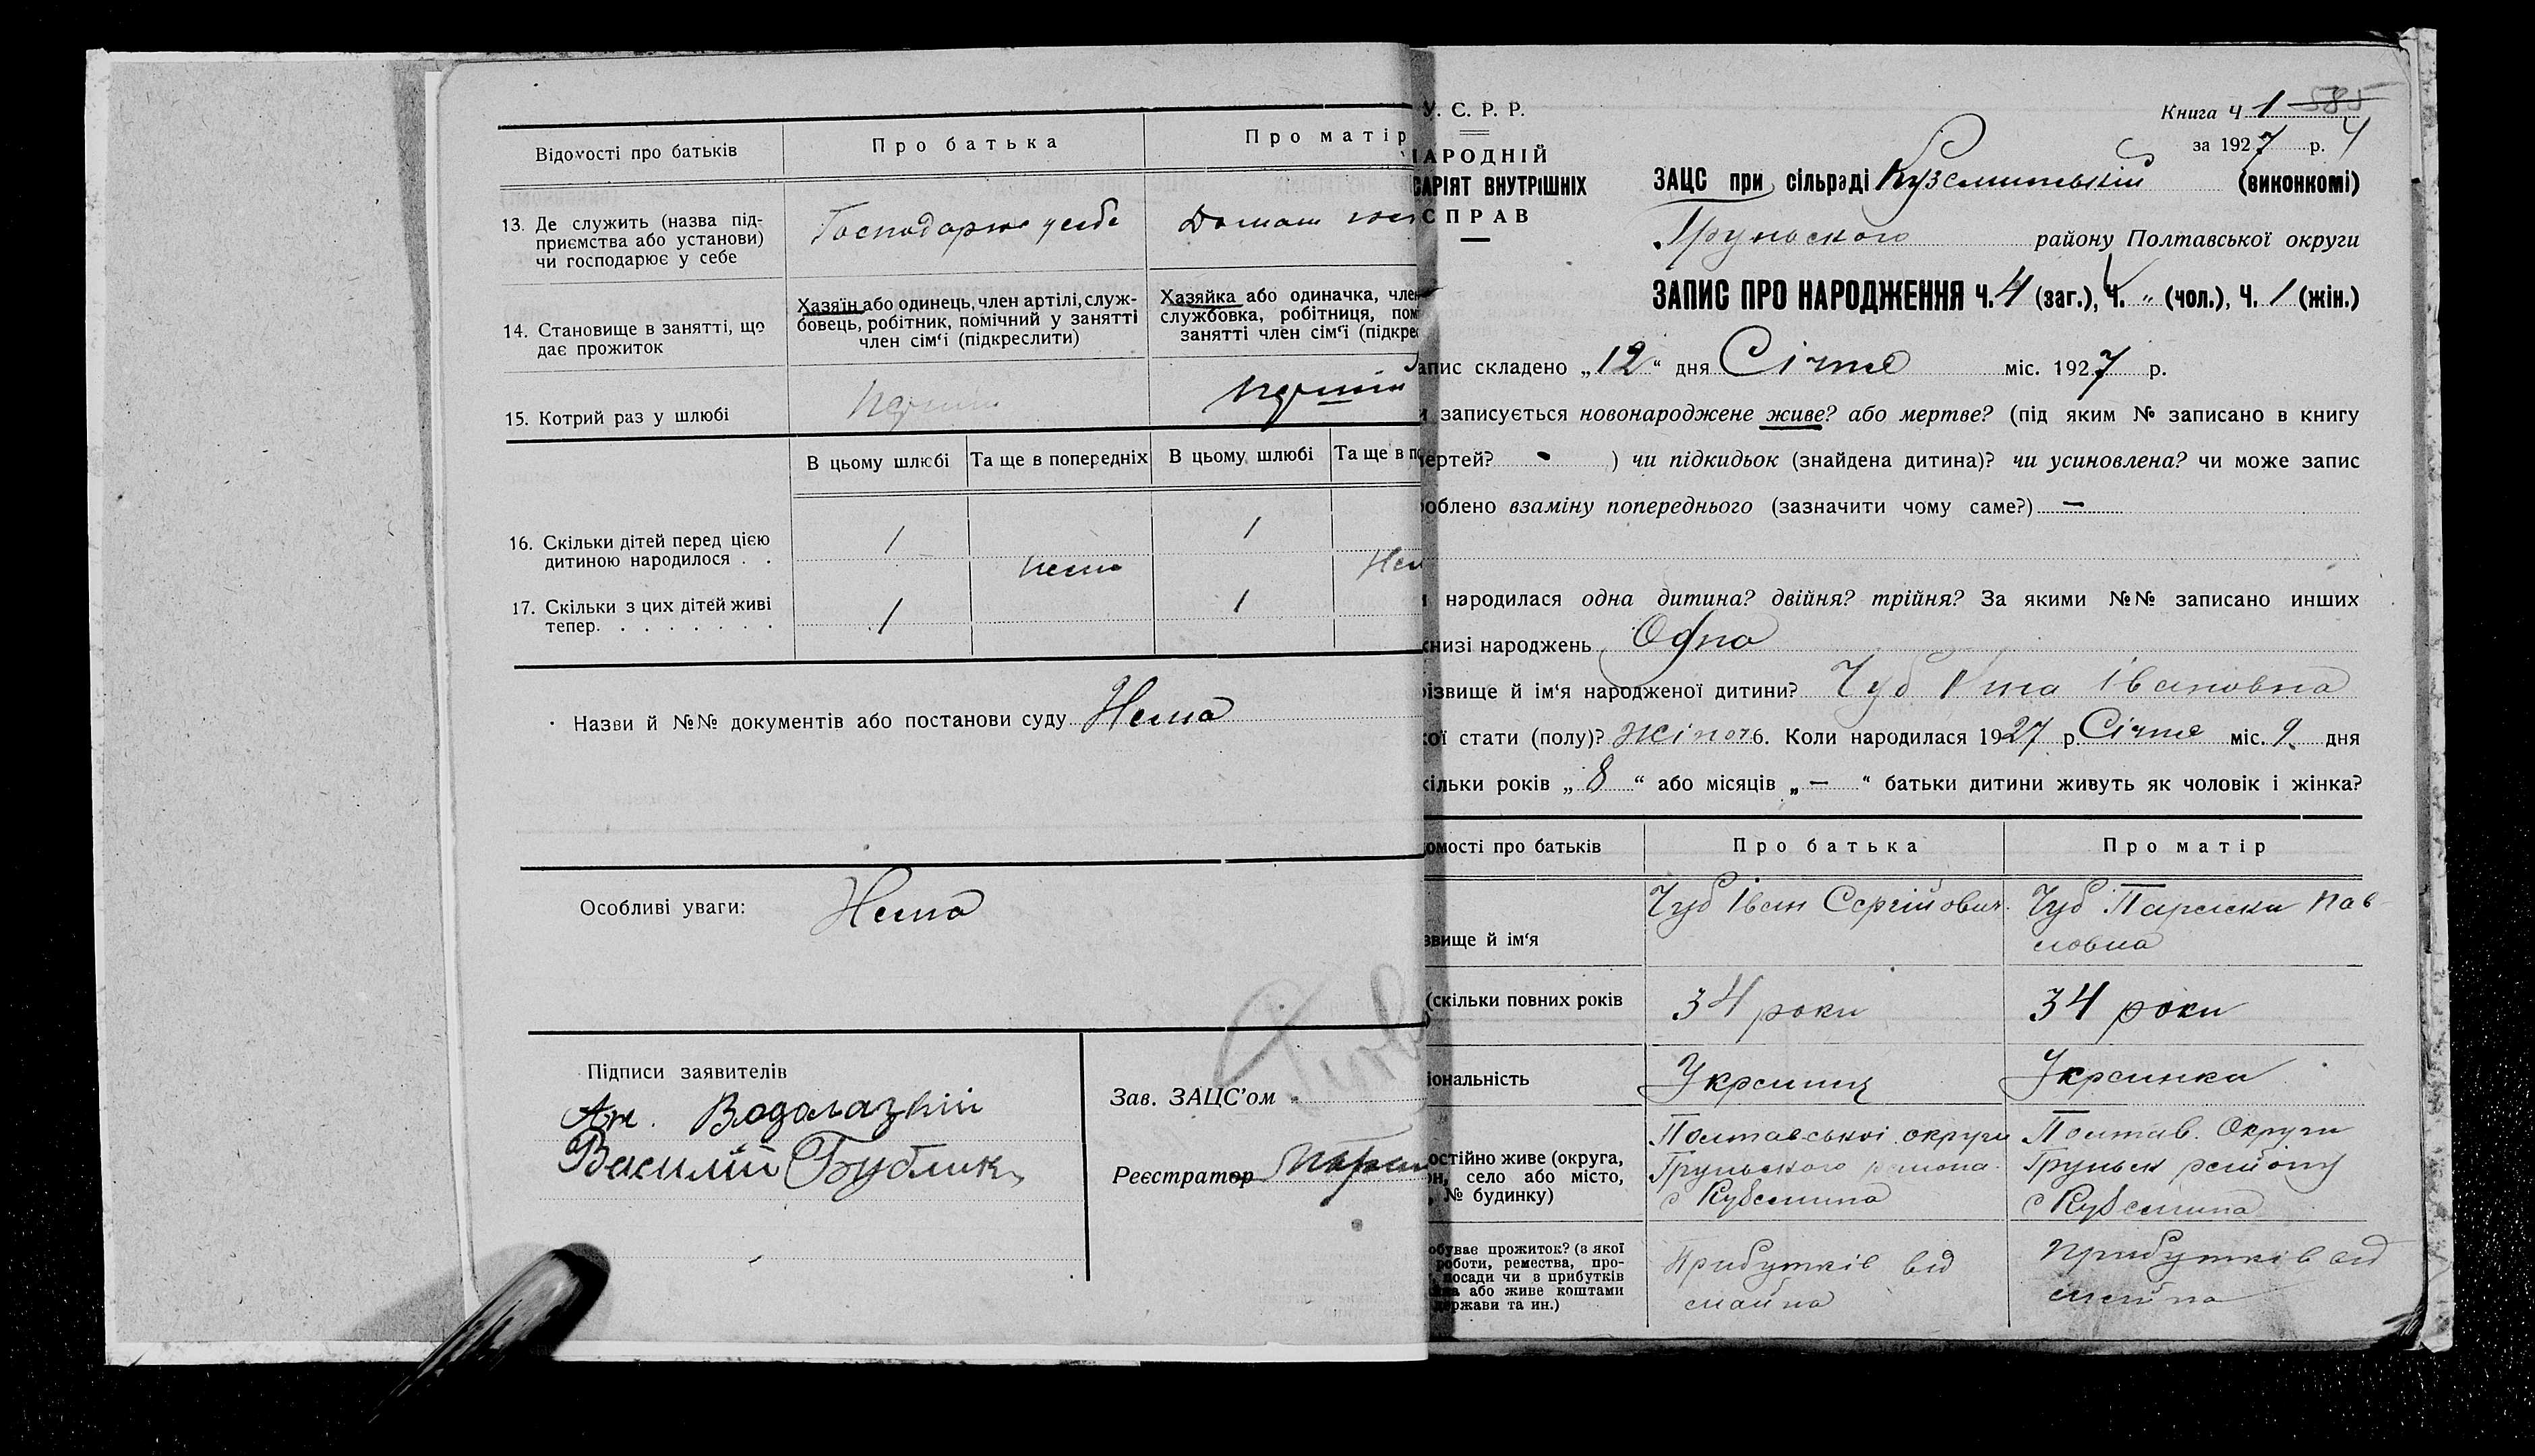 Відомості про батьків
Про батька
Про матір
13. Де служить (назва під-
приємства або установи)
чи господарює у себе
Господарює у себе
Домаш
14. Становище в занятті, що
дає прожиток
Хазяїн або одинець, член артілі, служ-
бовець, робітник, помічний у занятті
член сім‘ї (підкреслити)
Хазяйка або одиначка, член
службовка, робітниця, пом
занятті член сім‘ї (підкрес
15. Котрий раз у шлюбі
перший
перший
В цьому шлюбі
Та ще в попередніх
В цьому шлюбі
Та ще в по
16. Скільки дітей перед цією
дитиною народилося . .
1
нема
1
Нем
17. Скільки з цих дітей живі
тепер. . . . . . . .
1
1
Назви й №№ документів або постанови суду Нема
Особливі уваги: Нема
Підписи заявителів
Водолазкій
Василій Бублик
Зав. ЗАЦС’ом
Реєстратор
У. С. Р. Р.
НАРОДНІЙ
САРІЯТ ВНУТРІШНІХ
СПРАВ
Книга Ч 1 585
за 1927 р. 4
ЗАЦС при сільраді Кузёминській (виконкомі)
Груньского району Полтавської округи
ЗАПИС ПРО НАРОДЖЕННЯ Ч. 4 (заг.), Ч. „ (чол.), Ч. 1 (жін.)
апис складено „12“ дня Січня міс. 1927 р.
и записується новонароджене живе? або мертве? (під яким № записано в книгу
мертей? ) чи підкидьок (знайдена дитина)? чи усиновлена? чи може запис
роблено взаміну попереднього (зазначити чому саме?) —
и народилася одна дитина? двійня? трійня? За якими №№ записано инших
книзі народжень Одна
різвище й ім‘я народженої дитини? Чуб Івановна
кої стати (полу)? жіноч 6. Коли народилася 1927 р. Січня міс. 9 дня
кільки років „8“ або місяців „—“ батьки дитини живуть як чоловік і жінка?
омості про батьків
Про батька
Про матір
звище й ім‘я
Чуб Іван Сергійович
Чуб Параска Пав
ловна
(скільки повних років
34 роки
34 роки
іональність
Українец
Українка
остійно живе (округа,
он, село або місто,
№ будинку)
Полтавської округи
Груньского района
с Куземина
Полтав. Округи
Груньск району
с Куземина
обуває прожиток? (з якої
роботи, ремества, про-
посади чи з прибутків
йна або живе коштами
держави та ин.)
Прибутків від
майна
Прибутків від
майна